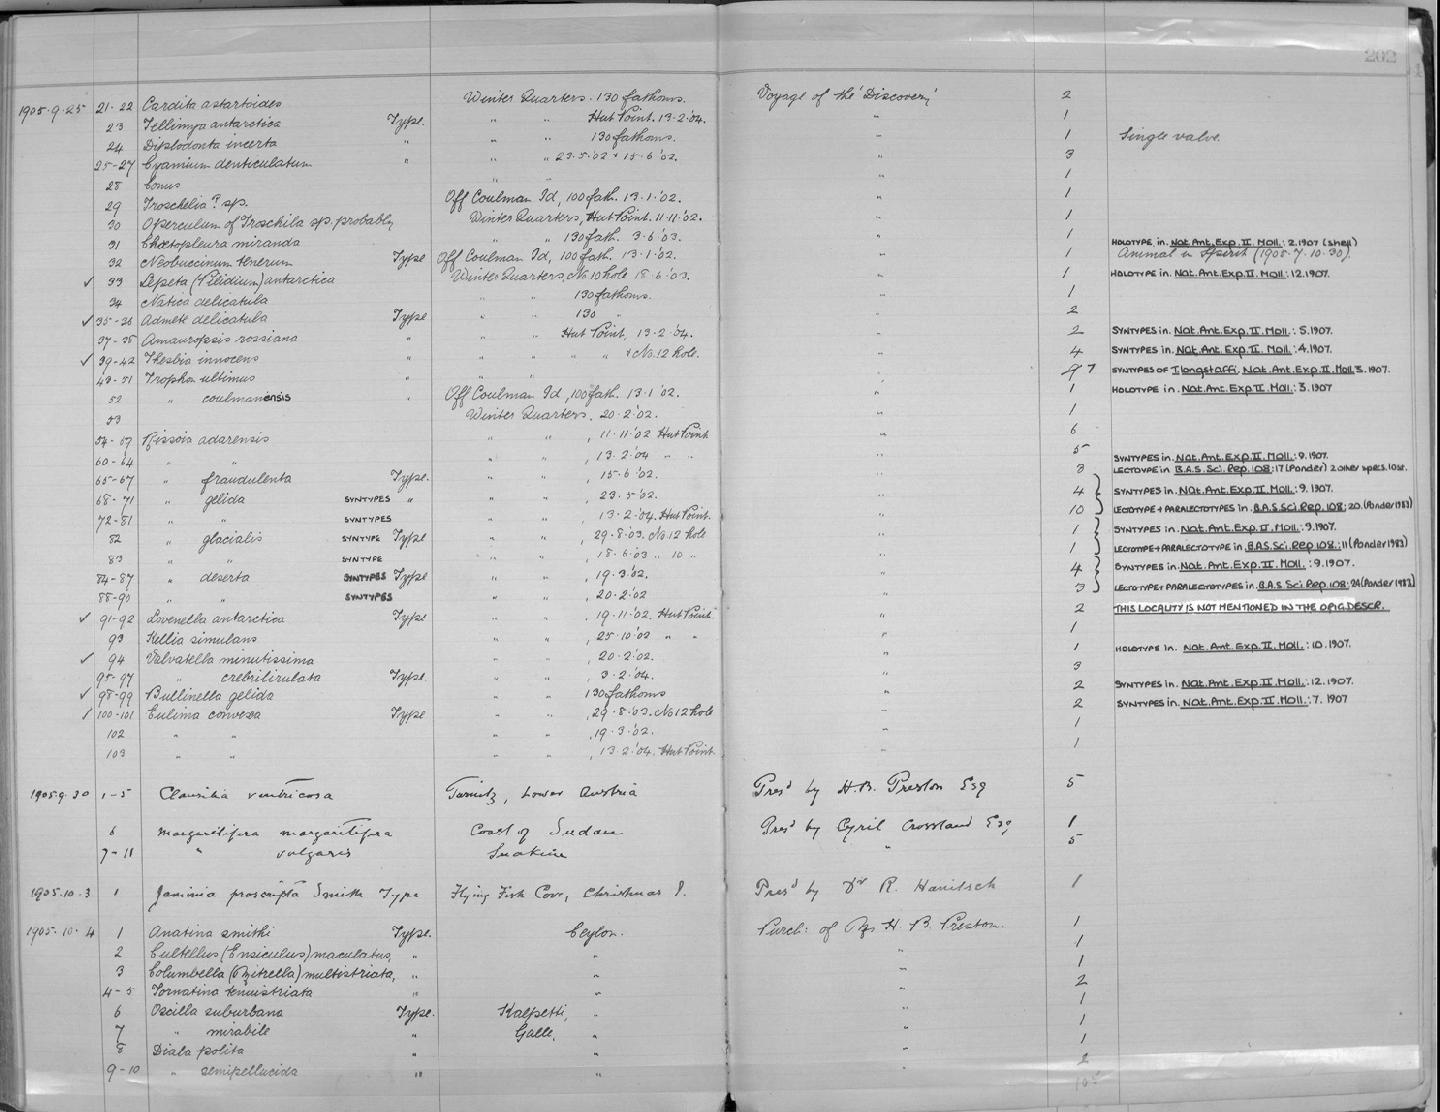 202
1905.9.25 21-22 Cardita astartoides Winter Quarters. 130 fathoms. Voyage of the 'Discovery' 2
23 Tellimya antarctica Type. " " Hut Point. 13.2.'04. " 1
24 Diplodonta incerta " " " 130 fathoms. " 1 Single valve.
25-27 Cyamium denticulatum " " " 23.5.'02 + 15.6.'02. " 3
28 Conus " " " 1
29 Troschelia? sp. Off Coulman Id, 100 fath. 13.1.'02. " 1
30 Operculum of Troschila sp. probably Winter Quarters, Hut Point. 11.11.'02. " 1
31 Chætopleura miranda " " 130 fath. 3.6.'03. " 1
32 Neobuccinum tenerum Type Off Coulman Id, 100 fath. 13.1.'02. " 1 HOLOTYPE in. Nat. Ant. Exp. II. Moll.: 2. 1907 (shell)
Animal in Spirit (1905.7.10.30).
✓ 33 Lepeta (Pilidium) antarctica Winter Quarters, No. 10 hole 18.6.'03. " 1 HOLOTYPE in. Nat. Ant. Exp. II. Moll: 12. 1907.
34 Natica delicatula " 130 fathoms. " 1
✓ 35-36 Admete delicatula Type " " 130 " " 2
37-38 Amauropsis rossiana " " " Hut Point, 13.2.'04. " 2 SYNTYPES in. Nat. Ant. Exp. II. Moll.: 5. 1907.
✓ 39-42 Thesbia innocens " " " " " + No. 12 hole. " 4 SYNTYPES in. Nat. Ant. Exp. II. Moll.: 4. 1907.
43-51 Trophon ultimus " " " " 9 SYNTYPES OF T. longstaffi. Nat. Ant. Exp. II. Moll. 3. 1907.
52 " coulmanensis " Off Coulman Id, 100 fath. 13.1.'02. " 1 HOLOTYPE in. Nat. Ant. Exp. II. Moll: 3. 1907
53 Winter Quarters. 20.2.'02. " 1
54-59 Rissoia adarensis " " , 11.11.'02 Hut Point " 6
60-64 " " " " , 13.2.'04 " " " 5
65-67 " fraudulenta Type. " " , 15.6.'02. " 3 SYNTYPES in. Nat. Ant. Exp. II. Moll.: 9. 1907.
LECTOTYPE in B.A.S. Sci. Rep. 108: 17 (Ponder) 2 other specs. lost.
68-71 " gelida SYNTYPES " " " , 23.5.'02. " 4 SYNTYPES in. Nat. Ant. Exp. II. Moll.: 9. 1907.
72-81 " " SYNTYPES " " , 13.2.'04. Hut Point. " 10 LECTOTYPE + PARALECTOTYPES in. B.A.S. Sci. Rep. 108: 20. (Ponder 1983)
82 " glacialis SYNTYPE Type " " , 29.8.'03. No. 12 hole " 1 SYNTYPES in. Nat. Ant. Exp. II. Moll.: 9. 1907.
83 " " SYNTYPE " " , 18.6.'03 " 10 " " 1 LECTOTYPE + PARALECTOTYPE in. B.A.S. Sci. Rep 108.: 11 (Ponder 1983)
84-87 " deserta SYNTYPES Type " " , 19.3.'02. " 4 SYNTYPES in. Nat. Ant. Exp. II. Moll.: 9. 1907.
88-90 " " SYNTYPES " " , 20.2.'02 " 3 LECTOTYPE + PARALECTOTYPES in. B.A.S. Sci. Rep. 108: 24 (Ponder 1983)
✓ 91-92 Lovenella antarctica Type " " , 19.11.'02. Hut Point " 2 THIS LOCALITY IS NOT MENTIONED IN THE ORIG. DESCR.
93 Kellia simulans " " , 25.10.'02 " " " 1
✓ 94 Valvatella minutissima " " , 20.2.'02. " 1 HOLOTYPE in. Nat. Ant. Exp. II. Moll.: 10. 1907.
95-97 " crebrilirulata Type. " " , 3.2.'04. " 3
✓ 98-99 Bullinella gelida " " 130 fathoms " 2 SYNTYPES in. Nat. Ant. Exp. II. Moll.: 12. 1907.
✓ 100-101 Eulima convexa Type " " , 29.8.'03. No 12 hole " 2 SYNTYPES in. Nat. Ant. Exp. II. Moll.: 7. 1907
102 " " " " , 19.3.'02. " 1
103 " " " " , 13.2.'04. Hut Point. " 1
1905.9.30 1-5 Clausilia ventricosa Ternitz, Lower Austria Pres'd by H.B. Preston Esq 5
6 Margaritifera margaritifera Coast of Sudan Pres'd by Cyril Crossland Esq 1
7-11 " vulgaris Suakim " 5
1905.10.3 1 Jaminia proscripta Smith Type Flying Fish Cove, Christmas I. Pres'd by Dr R. Hanitsch 1
1905.10.4 1 Anatina smithi Type. Ceylon. Purch: of H. B. Preston. 1
2 Cultellus (Ensiculus) maculatus, " " " 1
3 Columbella (Mitrella) multistriata, " " " 1
4-5 Tornatina tenuistriata " " " 2
6 Oscilla suburbana Type. Kalpetti, " " 1
7 " mirabile " Galle, " " 1
8 Diala polita " " " 1
9-10 " semipellucida " " " 2
105